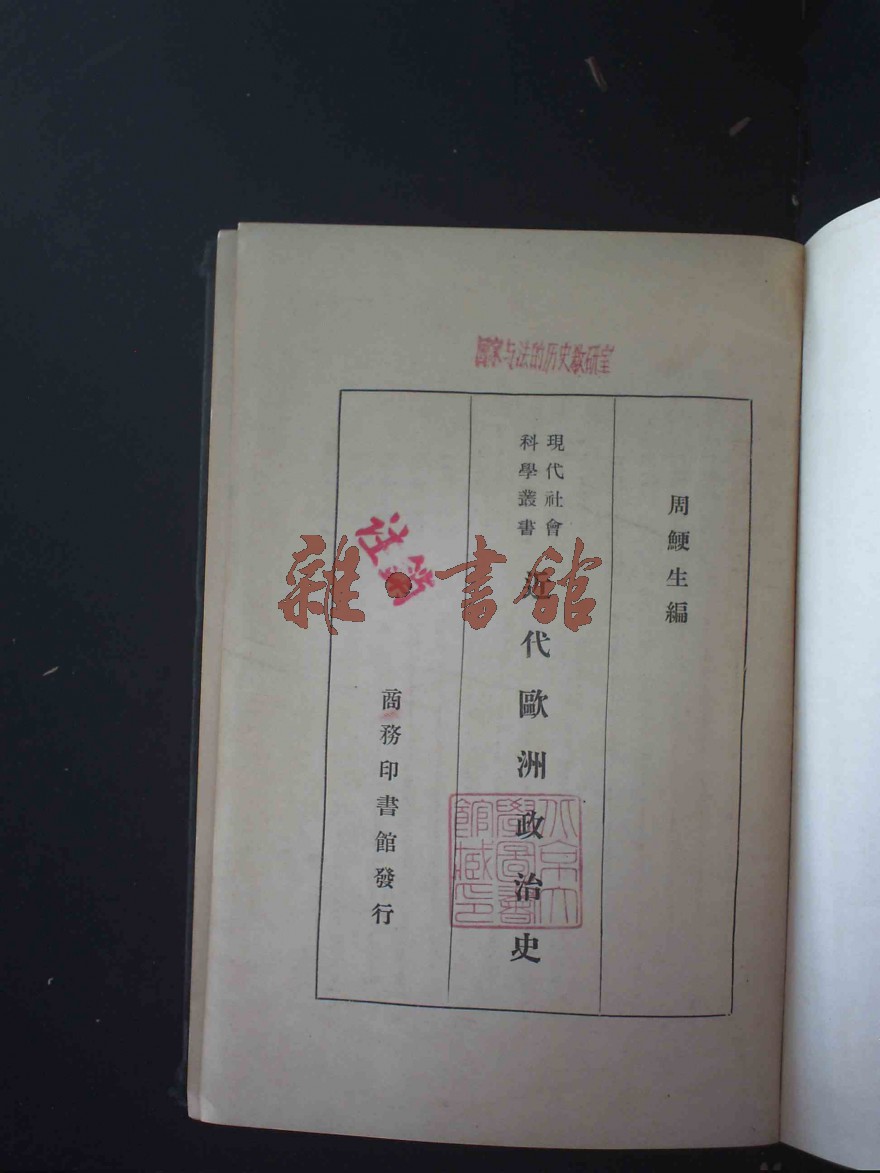 國家与法的历史教研室
周鯁生編
現代社會
科學叢書
近代歐洲政治史
商務印書館發行
注销
北京大
學圖書
館藏印
雜·書館